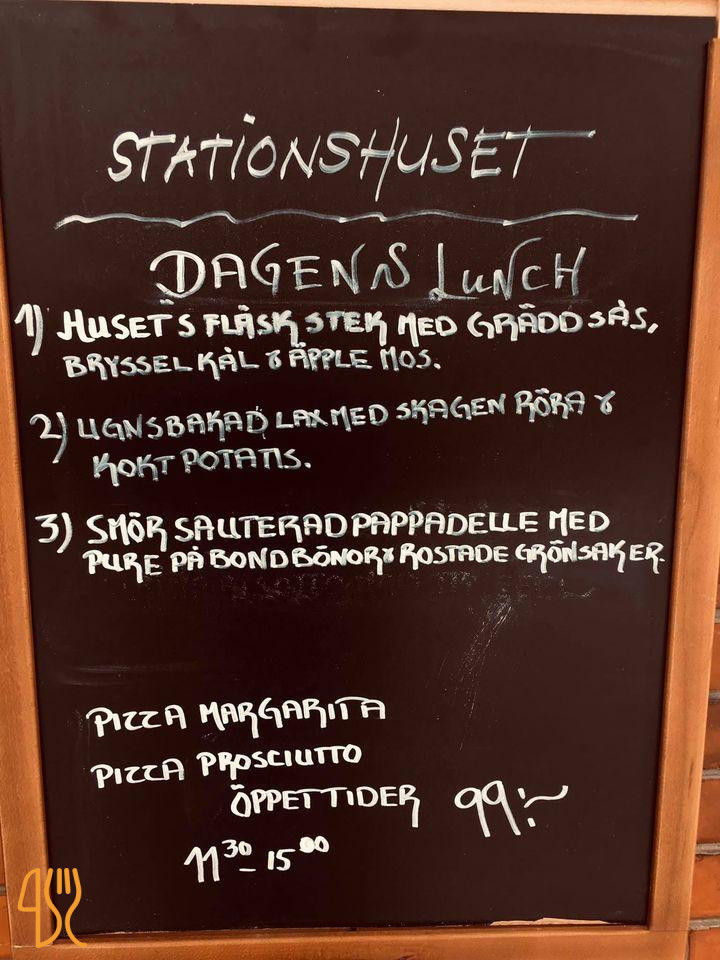 STATIONSHUSET
DAGENS LUNCH
1) HUSETS FLÄSK STEK MED GRÄDD SÅS,
BRYSSEL KÅL & ÄPPLE MOS.
2) UGNSBAKAD LAX MED SKAGEN RÖRA &
KOKT POTATIS.
3) SMÖR SAUTERAD PAPPADELLE MED
PURE PÅ BONDBÖNOR & ROSTADE GRÖNSAKER.
PIZZA MARGARITA
PIZZA PROSCIUTTO
ÖPPETTIDER 99:-
11 30 - 15 00